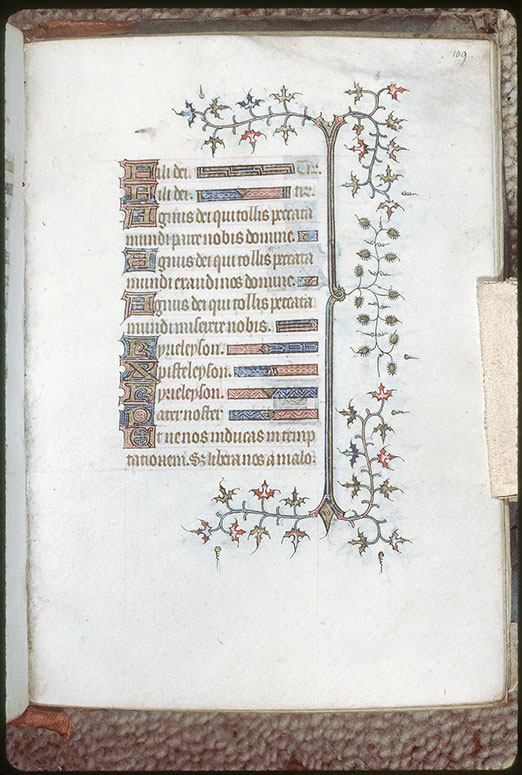 109
Fili dei. Tˀr.
Fili dei. tˀr.
Agnus dei qui tollis peccata
mundi parce nobis domine.
Agnus dei qui tollis peccata
mundi exaudi nos domine.
Agnus dei qui tollis peccata
mundi miserere nobis.
Kyrieleyson.
Xpisteleyson.
Kyrieleyson.
Pater noster
Et ne nos inducas in temp
tationem. Sz libera nos a malo.